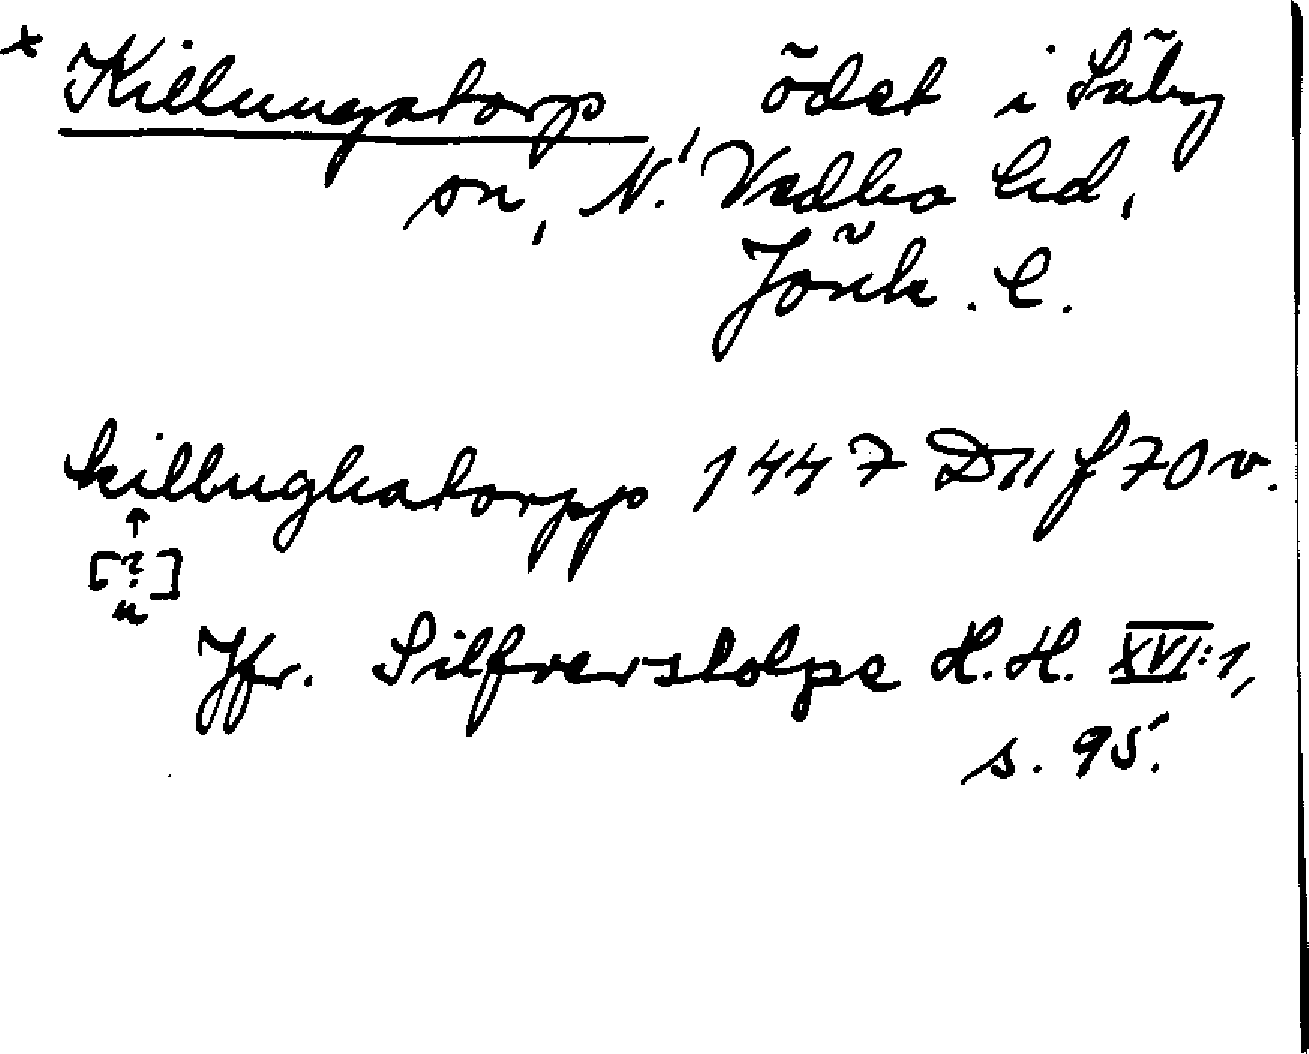 * Killungatorp, ödet i Säby
sn, N. Vedbo hd,
Jönk. l.
killughatorpp 1447 D11 f 70 v.
↑
[?]
u
Jfr. Silfverstolpe H.H. XVI:1,
s. 95.